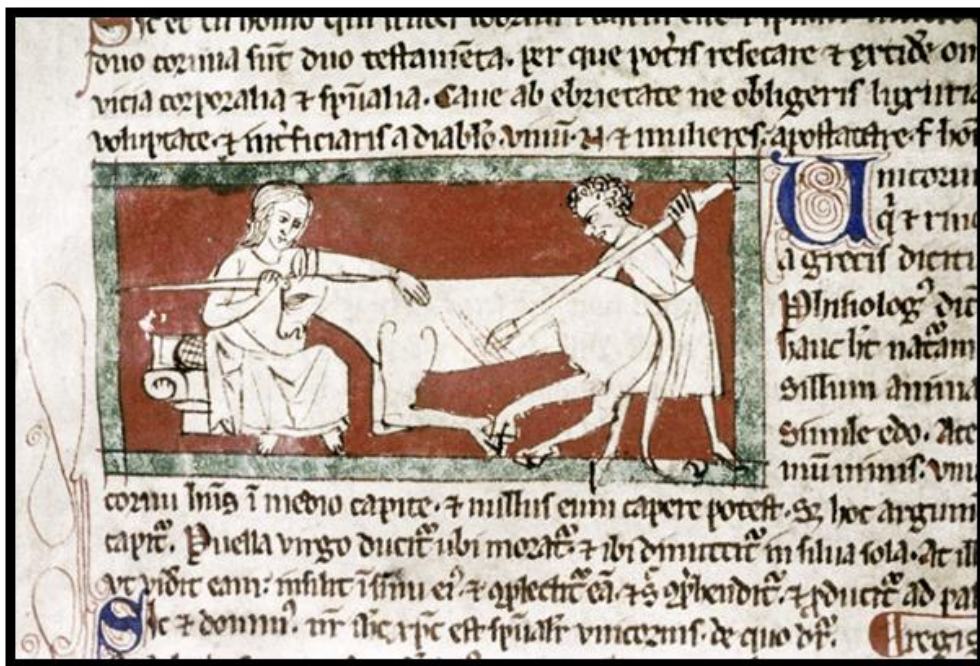 Sic et tu homo qui
duo cornua sut duo testamta. per que pot'is resecare ⁊ exci
uicia corporalia ⁊ spu̅alia. Caue ab ebrietate ne obligeris luxuria
uoluptate. ⁊ int'ficiaris a diabo̅lo. uinu̅ ⁊ mulieres. apostatare
Unicorni
q' ⁊ rino
a grecis dicit
Phisiolog' dic
hanc h't natam
sillum anima
simile edo. Ace
mu̅ nimis. vnu
cornu hn̅s i̅ medio capite. ⁊ nullus eum capere potest. S; hoc argum
capit'. Puella uirgo ducit' ubi morat'. ⁊ ibi dimittit' in silua sola. At ill
ut uidit eam. insilit i̅ sinu ei'. ⁊ ⁊ ducit' ad pa
Sic ⁊ domin'. nr̅ ih̅c xp̅c est sp̅ualis unicornis. de quo dr̅.